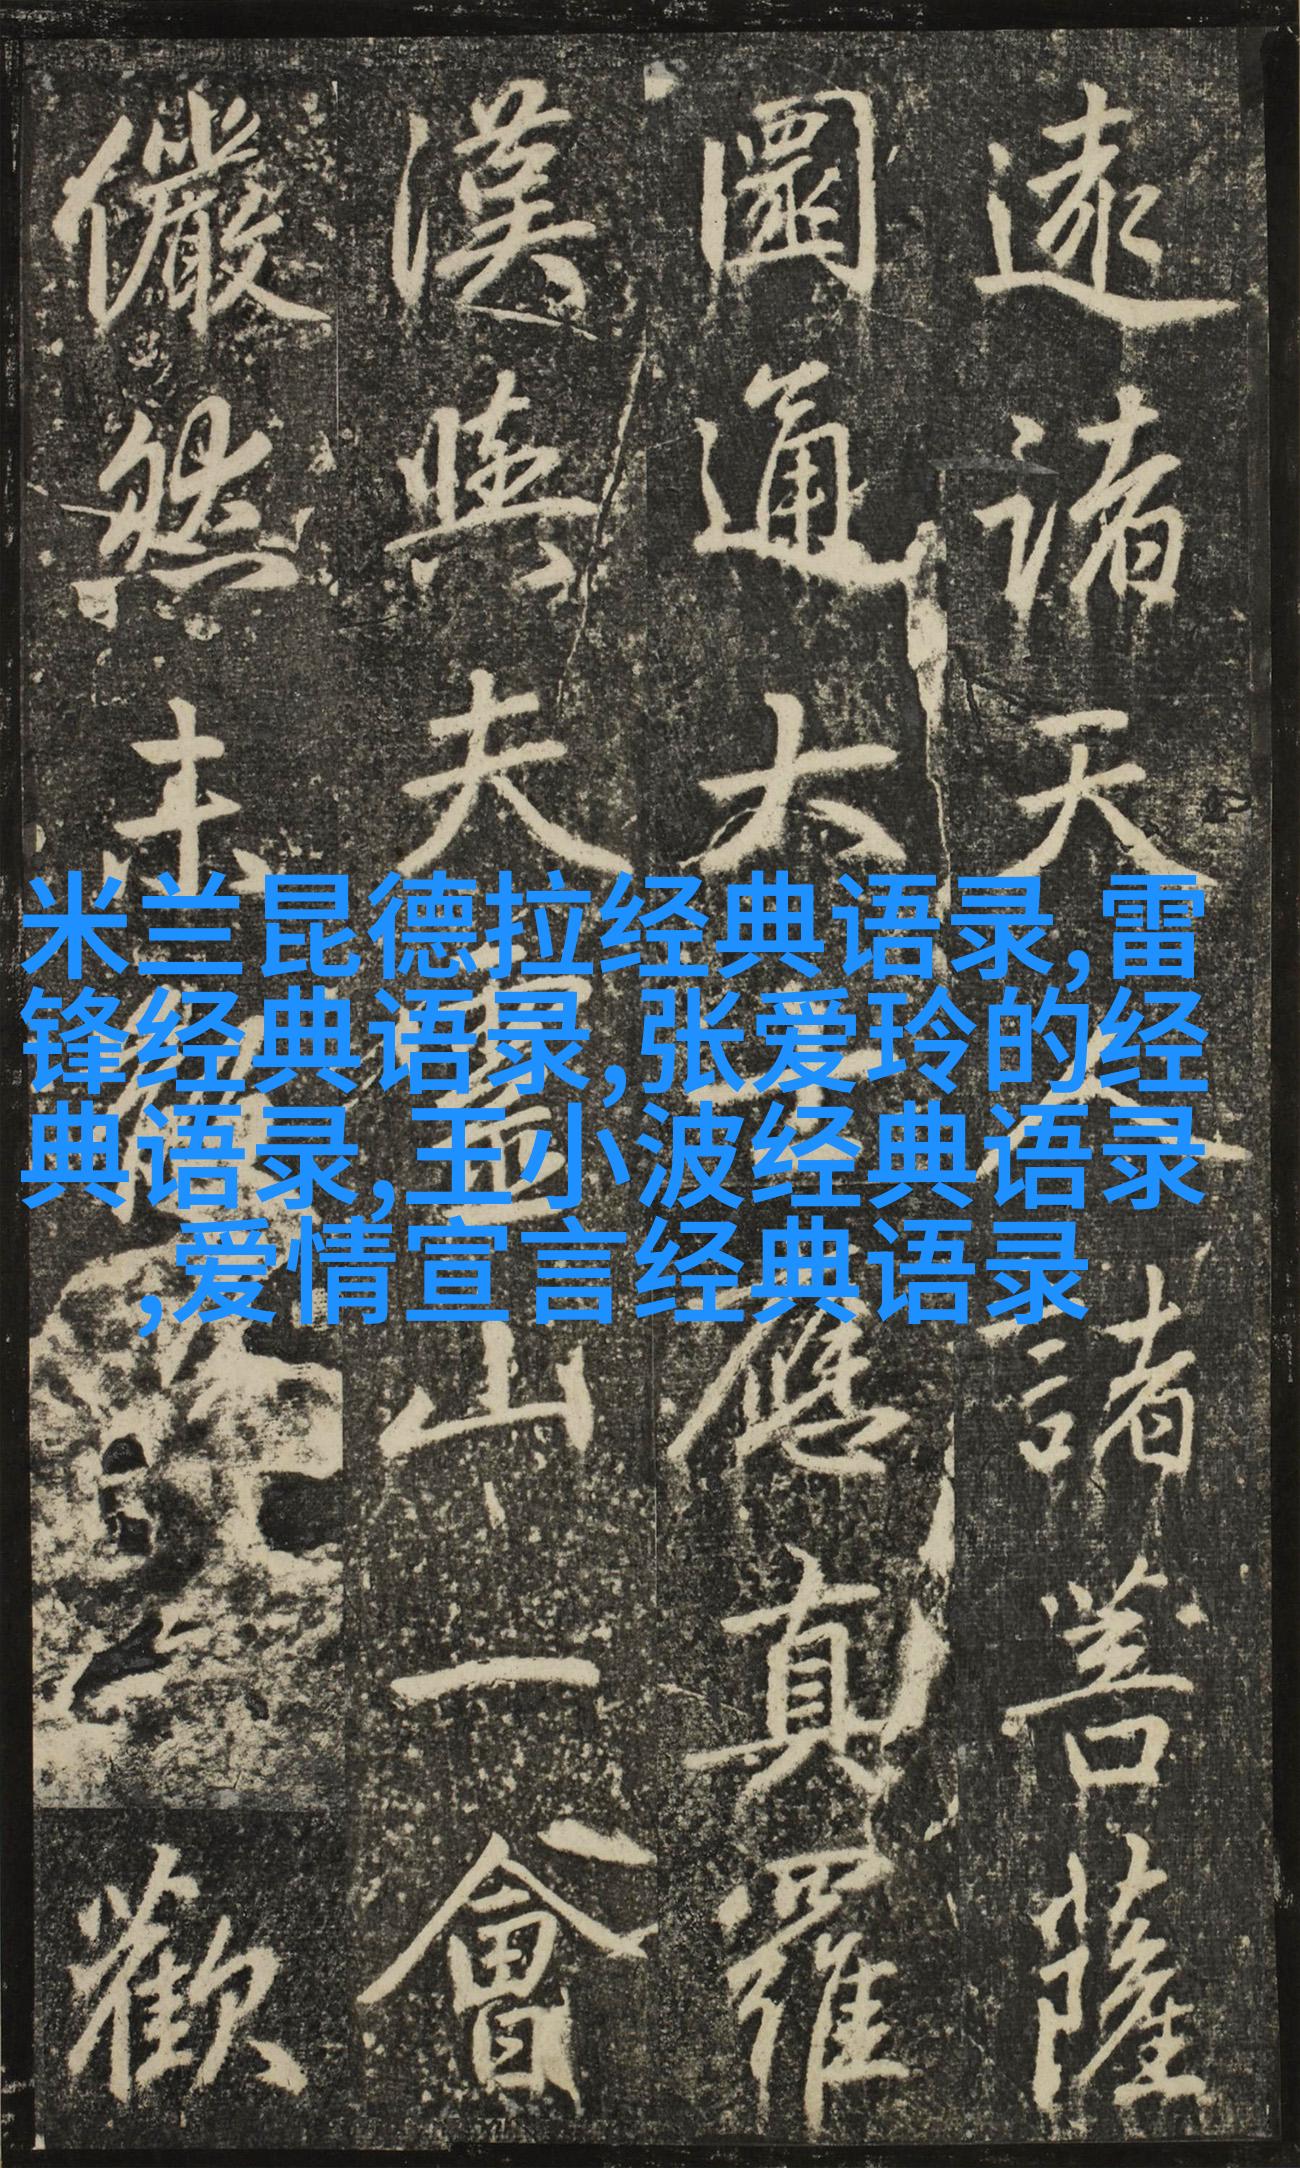 諸天人諸菩薩
圜通大士應真羅
漢與夫靈山一會
儼然未歡
米兰昆德拉经典语录,雷
锋经典语录,张爱玲的经
典语录,王小波经典语录
,爱情宣言经典语录